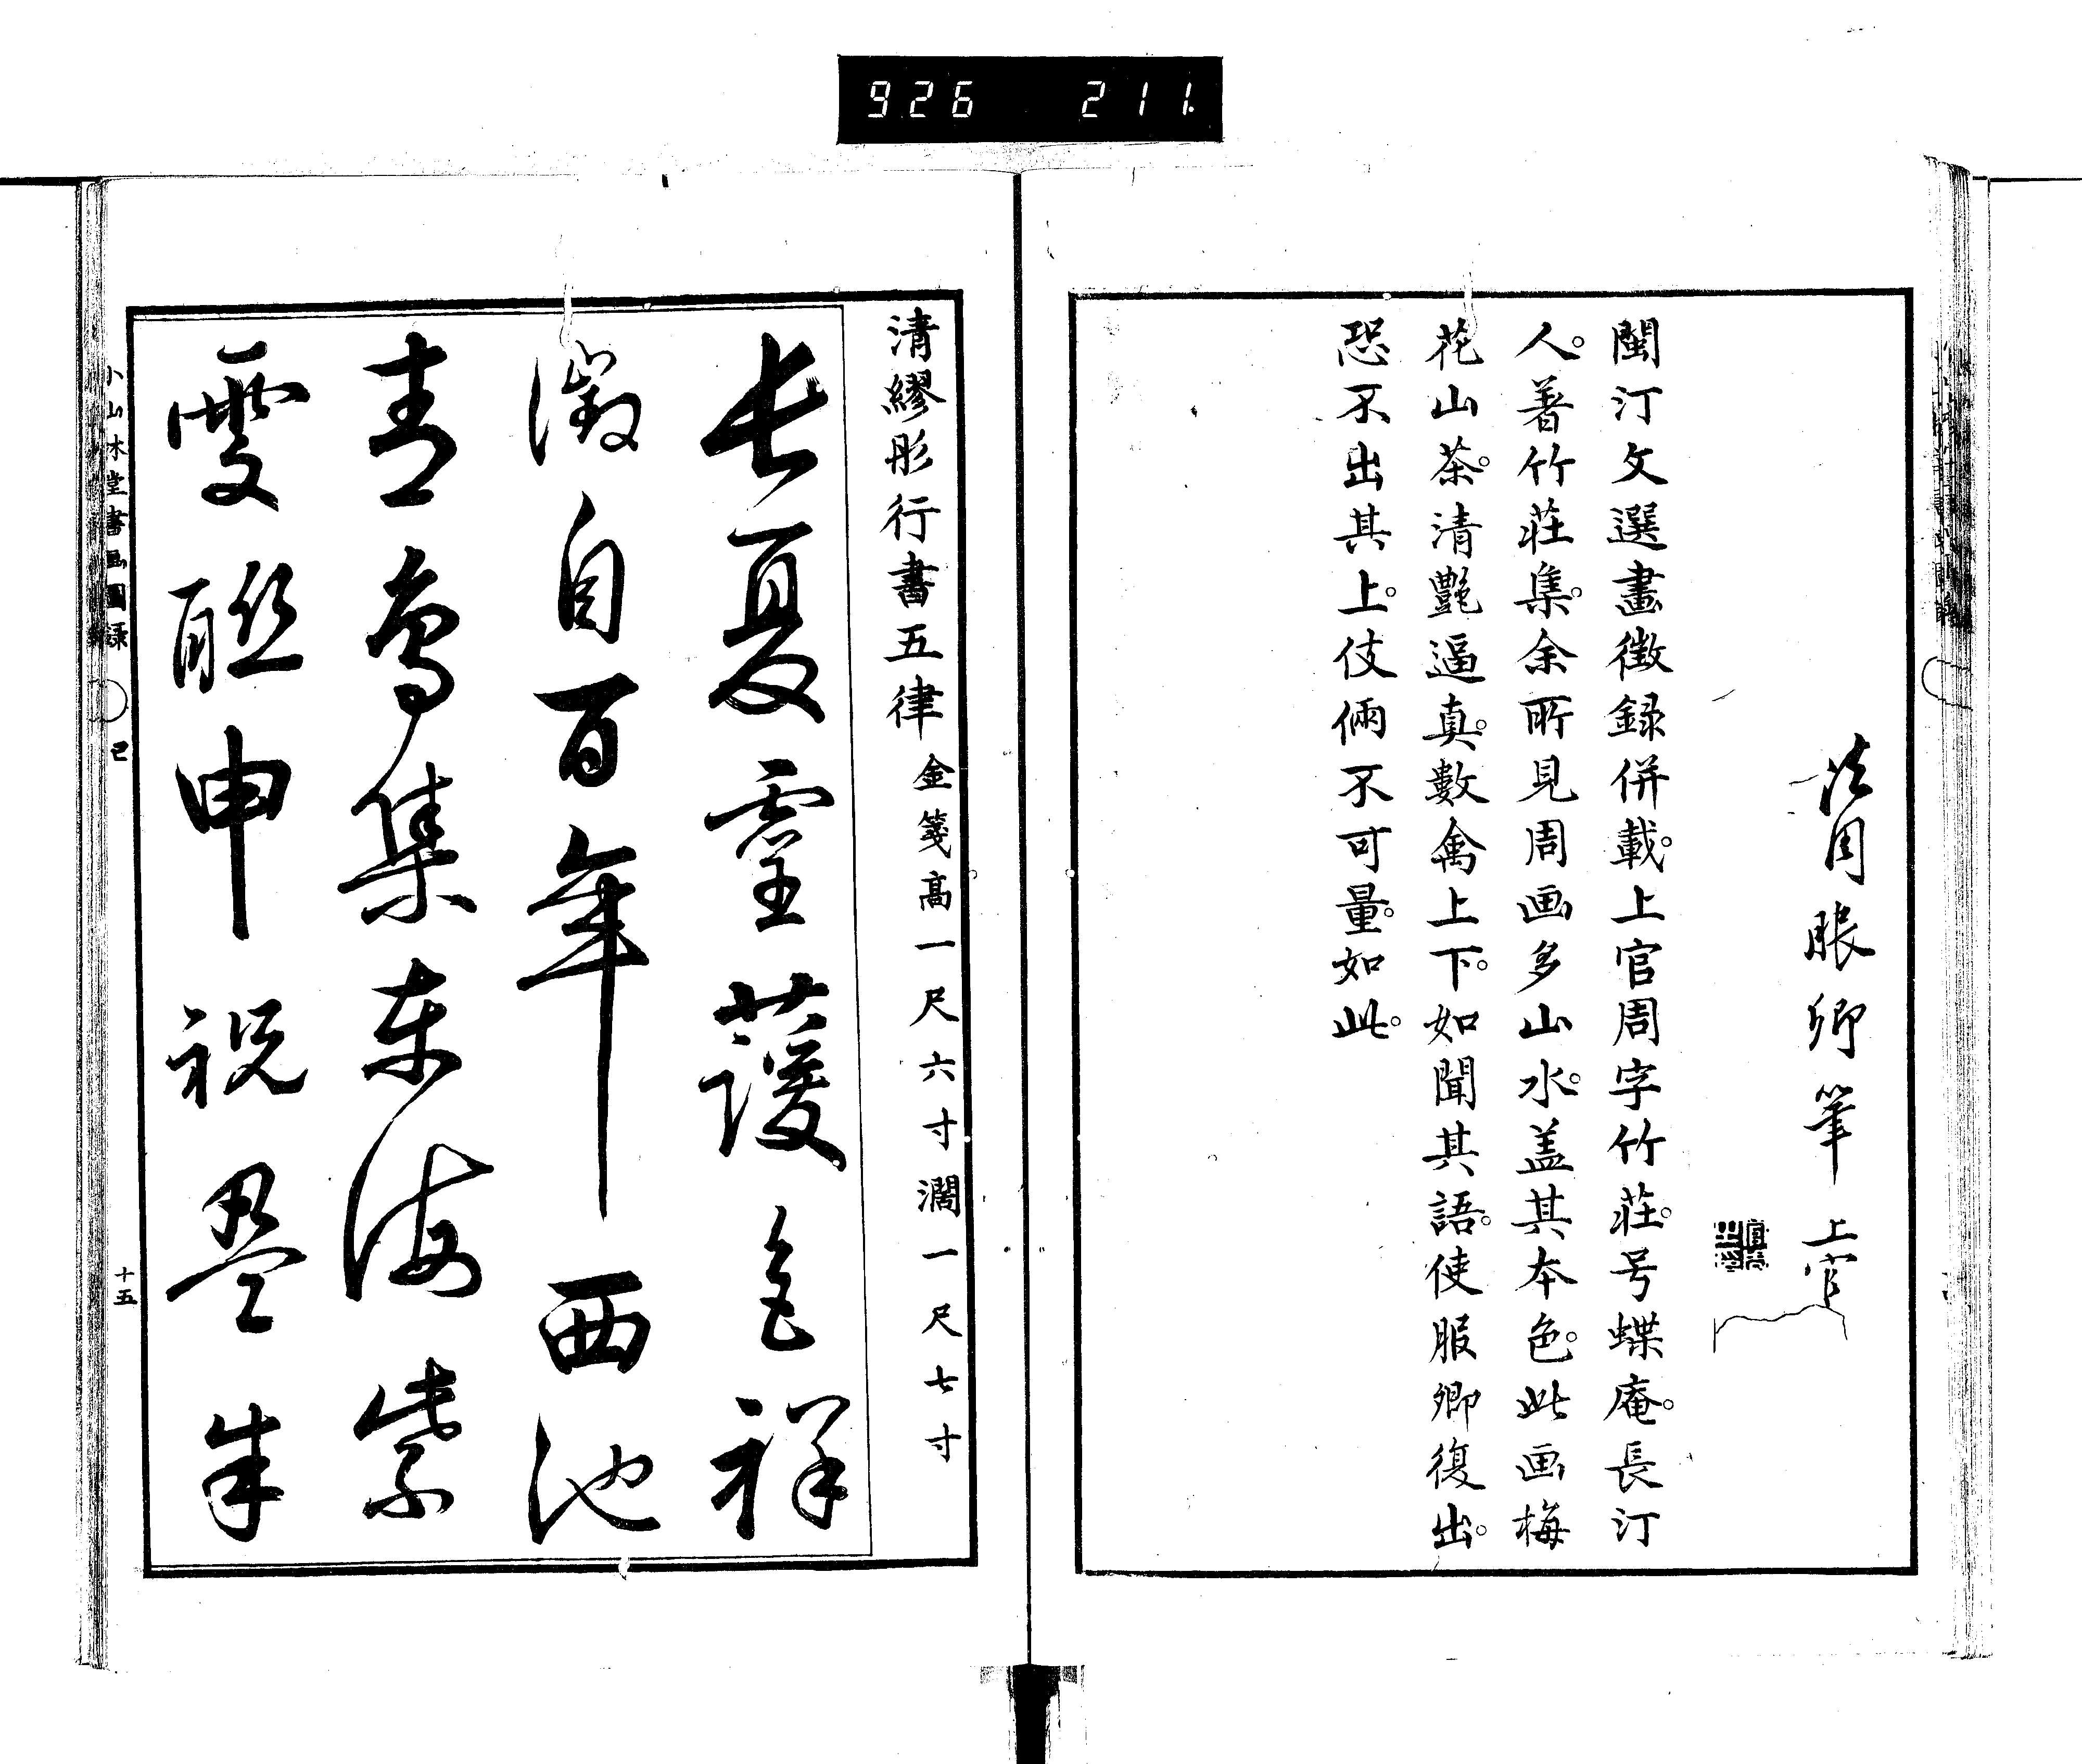 926 211
法周服卿筆 上官
閩汀文選畫徴録併載。上官周字竹荘。号蝶庵。長汀
人。著竹荘集。余所見周画多山水。盖其本色。此画梅
花山茶。清艶逼真。數禽上下。如聞其語。使服卿復出。
恐不出其上。伎倆不可量。如此。
清繆彤行書五律 金箋高一尺六寸濶一尺七寸
長夏靈萱色祥
徴自百年西池
青鳥集東海紫
雯聯申祝
朱
小山林堂書画圖録 己 十五